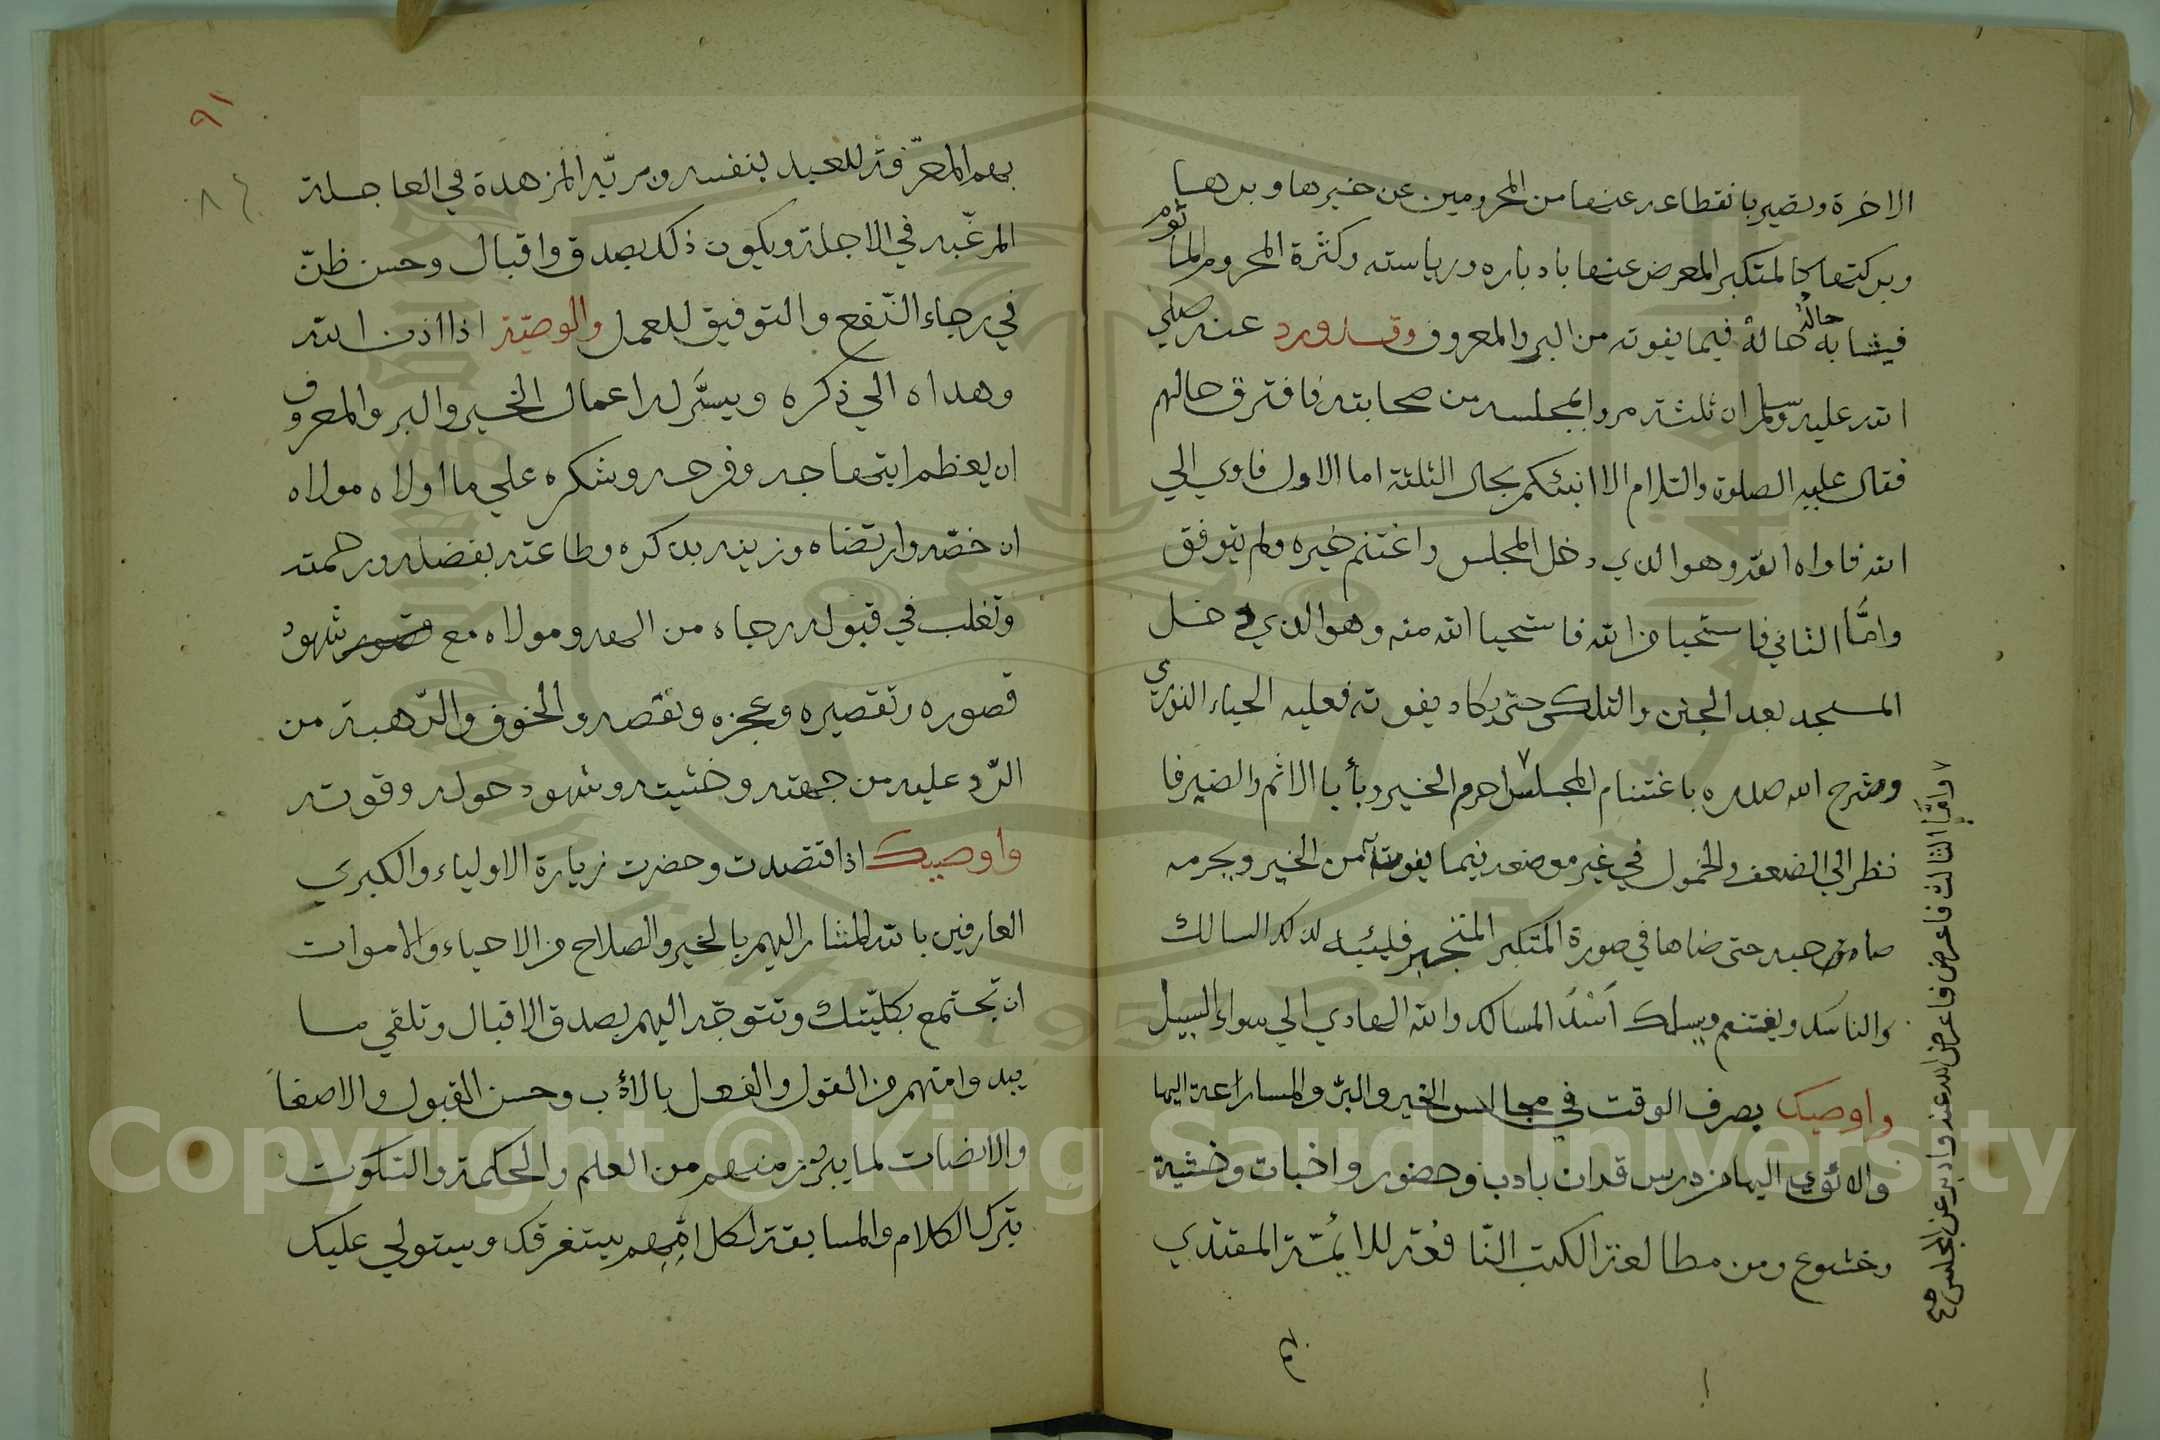 الاخرة ويصير بانقطاعه عنها من المحرومين عن خيرها وبرها
وبركتها كالمتكبر المعرض عنها بادباره ورياسته وكثرة المحروم المأثوم
فيشابه حاله حالة فيما يفوته من البر والمعروف وقد ورد عنه صلي
الله عليه وسلم ان ثلثة مروا بمجلسه من صحابته فافترق حالهم
فقال عليه الصلوة والسلام الا انبئكم بحال الثلثة اما الاول فاوي الي
الله فاواه الله وهو الذي دخل المجلس واغتنم خيره ولم يتوفق
وامّا الثاني فاستحيا من الله فاستحيا الله منه وهو الذي دخل
المسجد بعد الجبن والتلكى حتى كاد يفوته فعليه الحياء النوري
وشرح الله صدره باغتنام المجلس احرم الخير وبأبا الاثم والضير فا
نظر الي الضعف والخمول في غير موضعه فيما يفوته من الخير ويحرمه
صاحبه حتى ضاها في صورة المتكبر المتجبر فليئبه لذلك السالك
والناسك ويغتنم ويسلك اسَدّ المسالك والله الهادي الي سواء السبيل
واوصيك بصرف الوقت في مجالس الخير والبرّ والمسارعة اليها
والاوي اليها من درس قران بادب وحضور واخبات وخشية
وخشوع ومن مطالعة الكتب النّافعة للايمّة المقتدي
وامّا الثالث فاعرض فاعرض الله عنه وادبر عن المجلس صح
بهم
٩١
بهم المعرّفة للعبد بنفسه ومربّيه المزهدة في العاجلة
المرغّبه في الاجلة ويكون ذلك بصدق واقبال وحسن ظنّ
في رجاء النّفع والتوفيق للعمل والوصيّة اذا اذن الله
وهداه الي ذكره ويسَّر له اعمال الخير والبر والمعروف
ان يعظم ابتهاجه وفرحه وشكره علي ما اولاه مولاه
ان خصّه وارتضاه وزينه بذكره وطاعته بفضله ورحمته
وتغلب في قبوله رجاه من الهه ومولاه مع قصور شهود
قصوره وتقصيره وعجزه ونقصه والخوف والرّهبة من
الرّد عليه من جهته وخشيته وشهود حوله وقوته
واوصيك اذا قتصدت وحضرت زيارة الاولياء والكبري
العارفين بالله المشار اليهم بالخير والصلاح من الاحياء والاموات
ان تجتمع بكليّتك وتتوجّه اليهم بصدق الاقبال وتلقي ما
يبدوا منهم من القول والفعل بالأدب وحسن القبول والاصغا
والانصات لما يبرز منهم من العلم والحكمة والسّكوت
بترك الكلام والمسابقة لكل امر مهم يستغرقك ويستولي عليك
Copyright © King Saud University